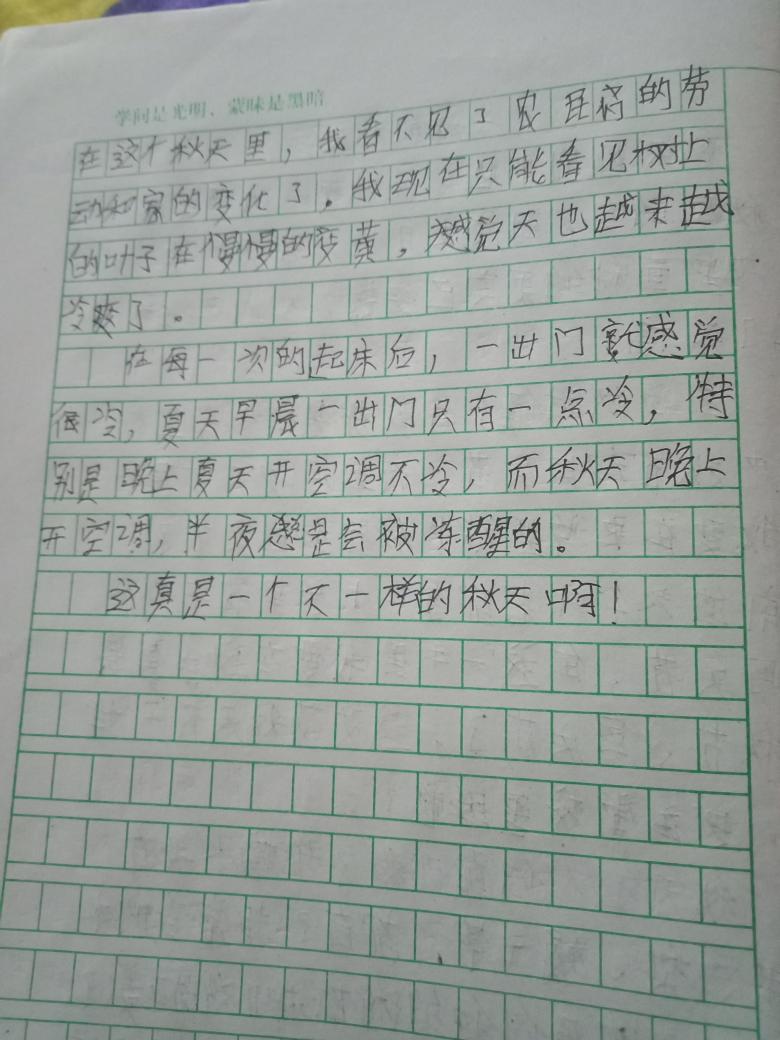 学问是光明、蒙昧是黑暗
在这个秋天里，我看不见了农民的劳
动和家的变化了。我现在只能看见树上
的叶子在慢慢的变黄，感觉天也越来越
冷了。
在每一次的起床后，一出门就感觉
很冷，夏天早晨一出门只有一点冷，特
别是晚上夏天开空调不冷，而秋天晚上
开空调，半夜总是会被冻醒的。
这真是一个不一样的秋天啊！